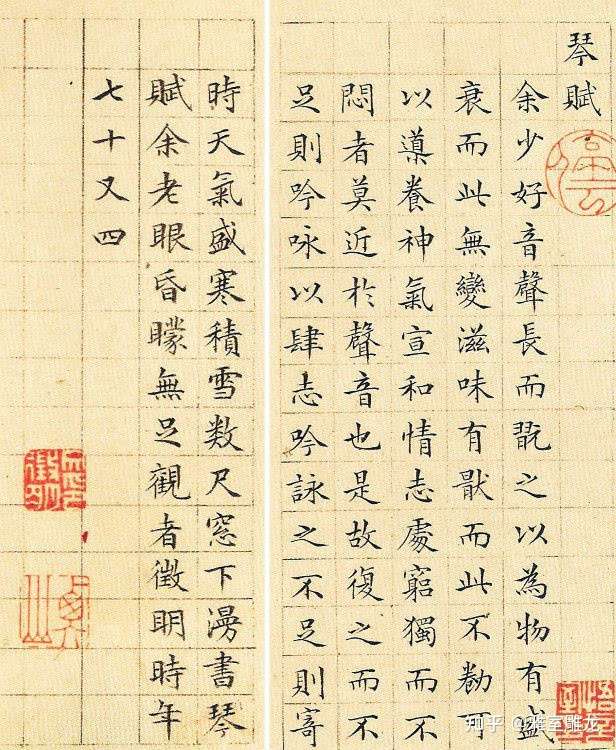 琴賦
余少好音聲長而翫之以為物有盛
衰而此無變滋味有猒而此不勌可
以導養神氣宣和情志處窮獨而不
悶者莫近於聲音也是故復之而不
足則吟咏以肆志吟詠之不足則寄
時天氣盛寒積雪数尺窓下漫書琴
賦余老眼昏矇無足觀者徵明時年
七十又四
停雲
衡山
知乎 @雅室雕龙